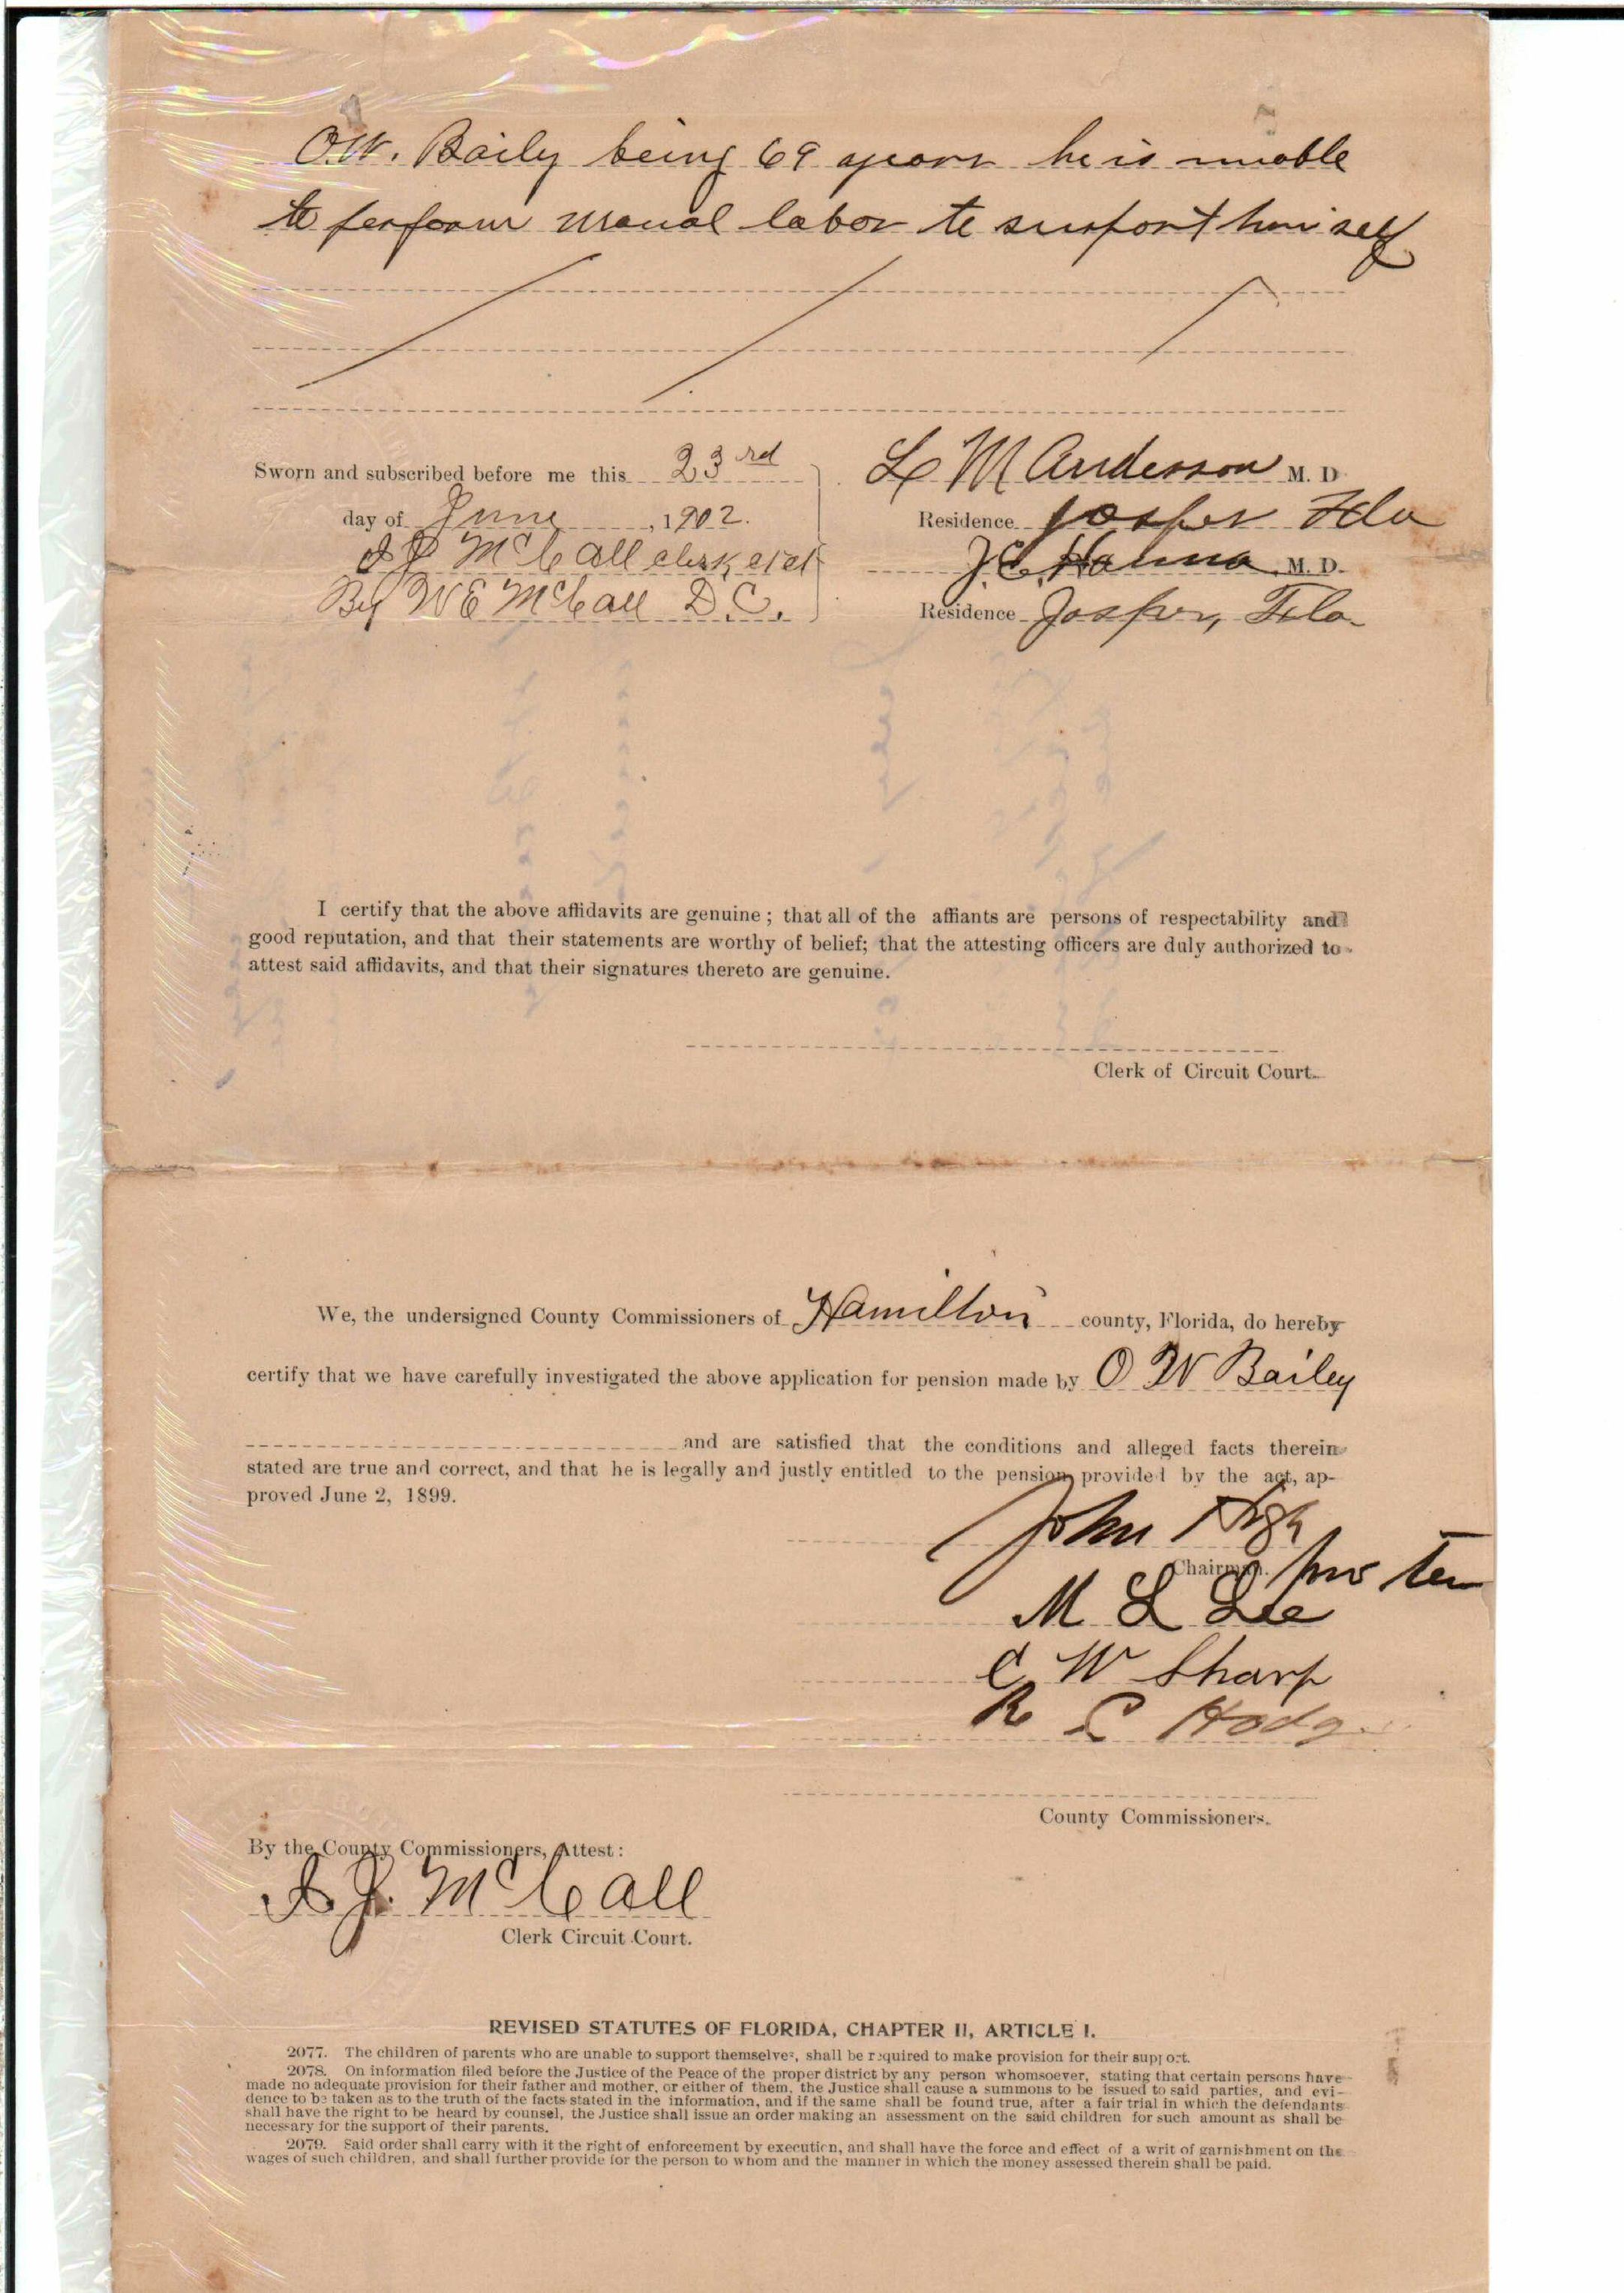 O.W. Baily being 69 years he is unable
to perform manual labor to support him self
Sworn and subscribed before me this 23rd
day of June, 1902.
McCall clerk
By W E McCall D.C.
L M Anderson M. D
Residence Jasper Fla
J.C. M. D.
Residence Jasper, Fla.
I certify that the above affidavits are genuine; that all of the affiants are persons of respectability and
good reputation, and that their statements are worthy of belief; that the attesting officers are duly authorized to
attest said affidavits, and that their signatures thereto are genuine.
Clerk of Circuit Court.
We, the undersigned County Commissioners of Hamilton county, Florida, do hereby
certify that we have carefully investigated the above application for pension made by O W Bailey
and are satisfied that the conditions and alleged facts therein
stated are true and correct, and that he is legally and justly entitled to the pension provided by the act, ap-
proved June 2, 1899.
John
Chairman. pro tem
M L Lee
C W Sharp
R C
County Commissioners.
By the County Commissioners, Attest:
McCall
Clerk Circuit Court.
REVISED STATUTES OF FLORIDA, CHAPTER II, ARTICLE I.
2077. The children of parents who are unable to support themselves, shall be required to make provision for their support.
2078. On information filed before the Justice of the Peace of the proper district by any person whomsoever, stating that certain persons have
made no adequate provision for their father and mother, or either of them, the Justice shall cause a summons to be issued to said parties, and evi-
dence to be taken as to the truth of the facts stated in the information, and if the same shall be found true, after a fair trial in which the defendants
shall have the right to be heard by counsel, the Justice shall issue an order making an assessment on the said children for such amount as shall be
necessary for the support of their parents.
2079. Said order shall carry with it the right of enforcement by execution, and shall have the force and effect of a writ of garnishment on the
wages of such children, and shall further provide for the person to whom and the manner in which the money assessed therein shall be paid.